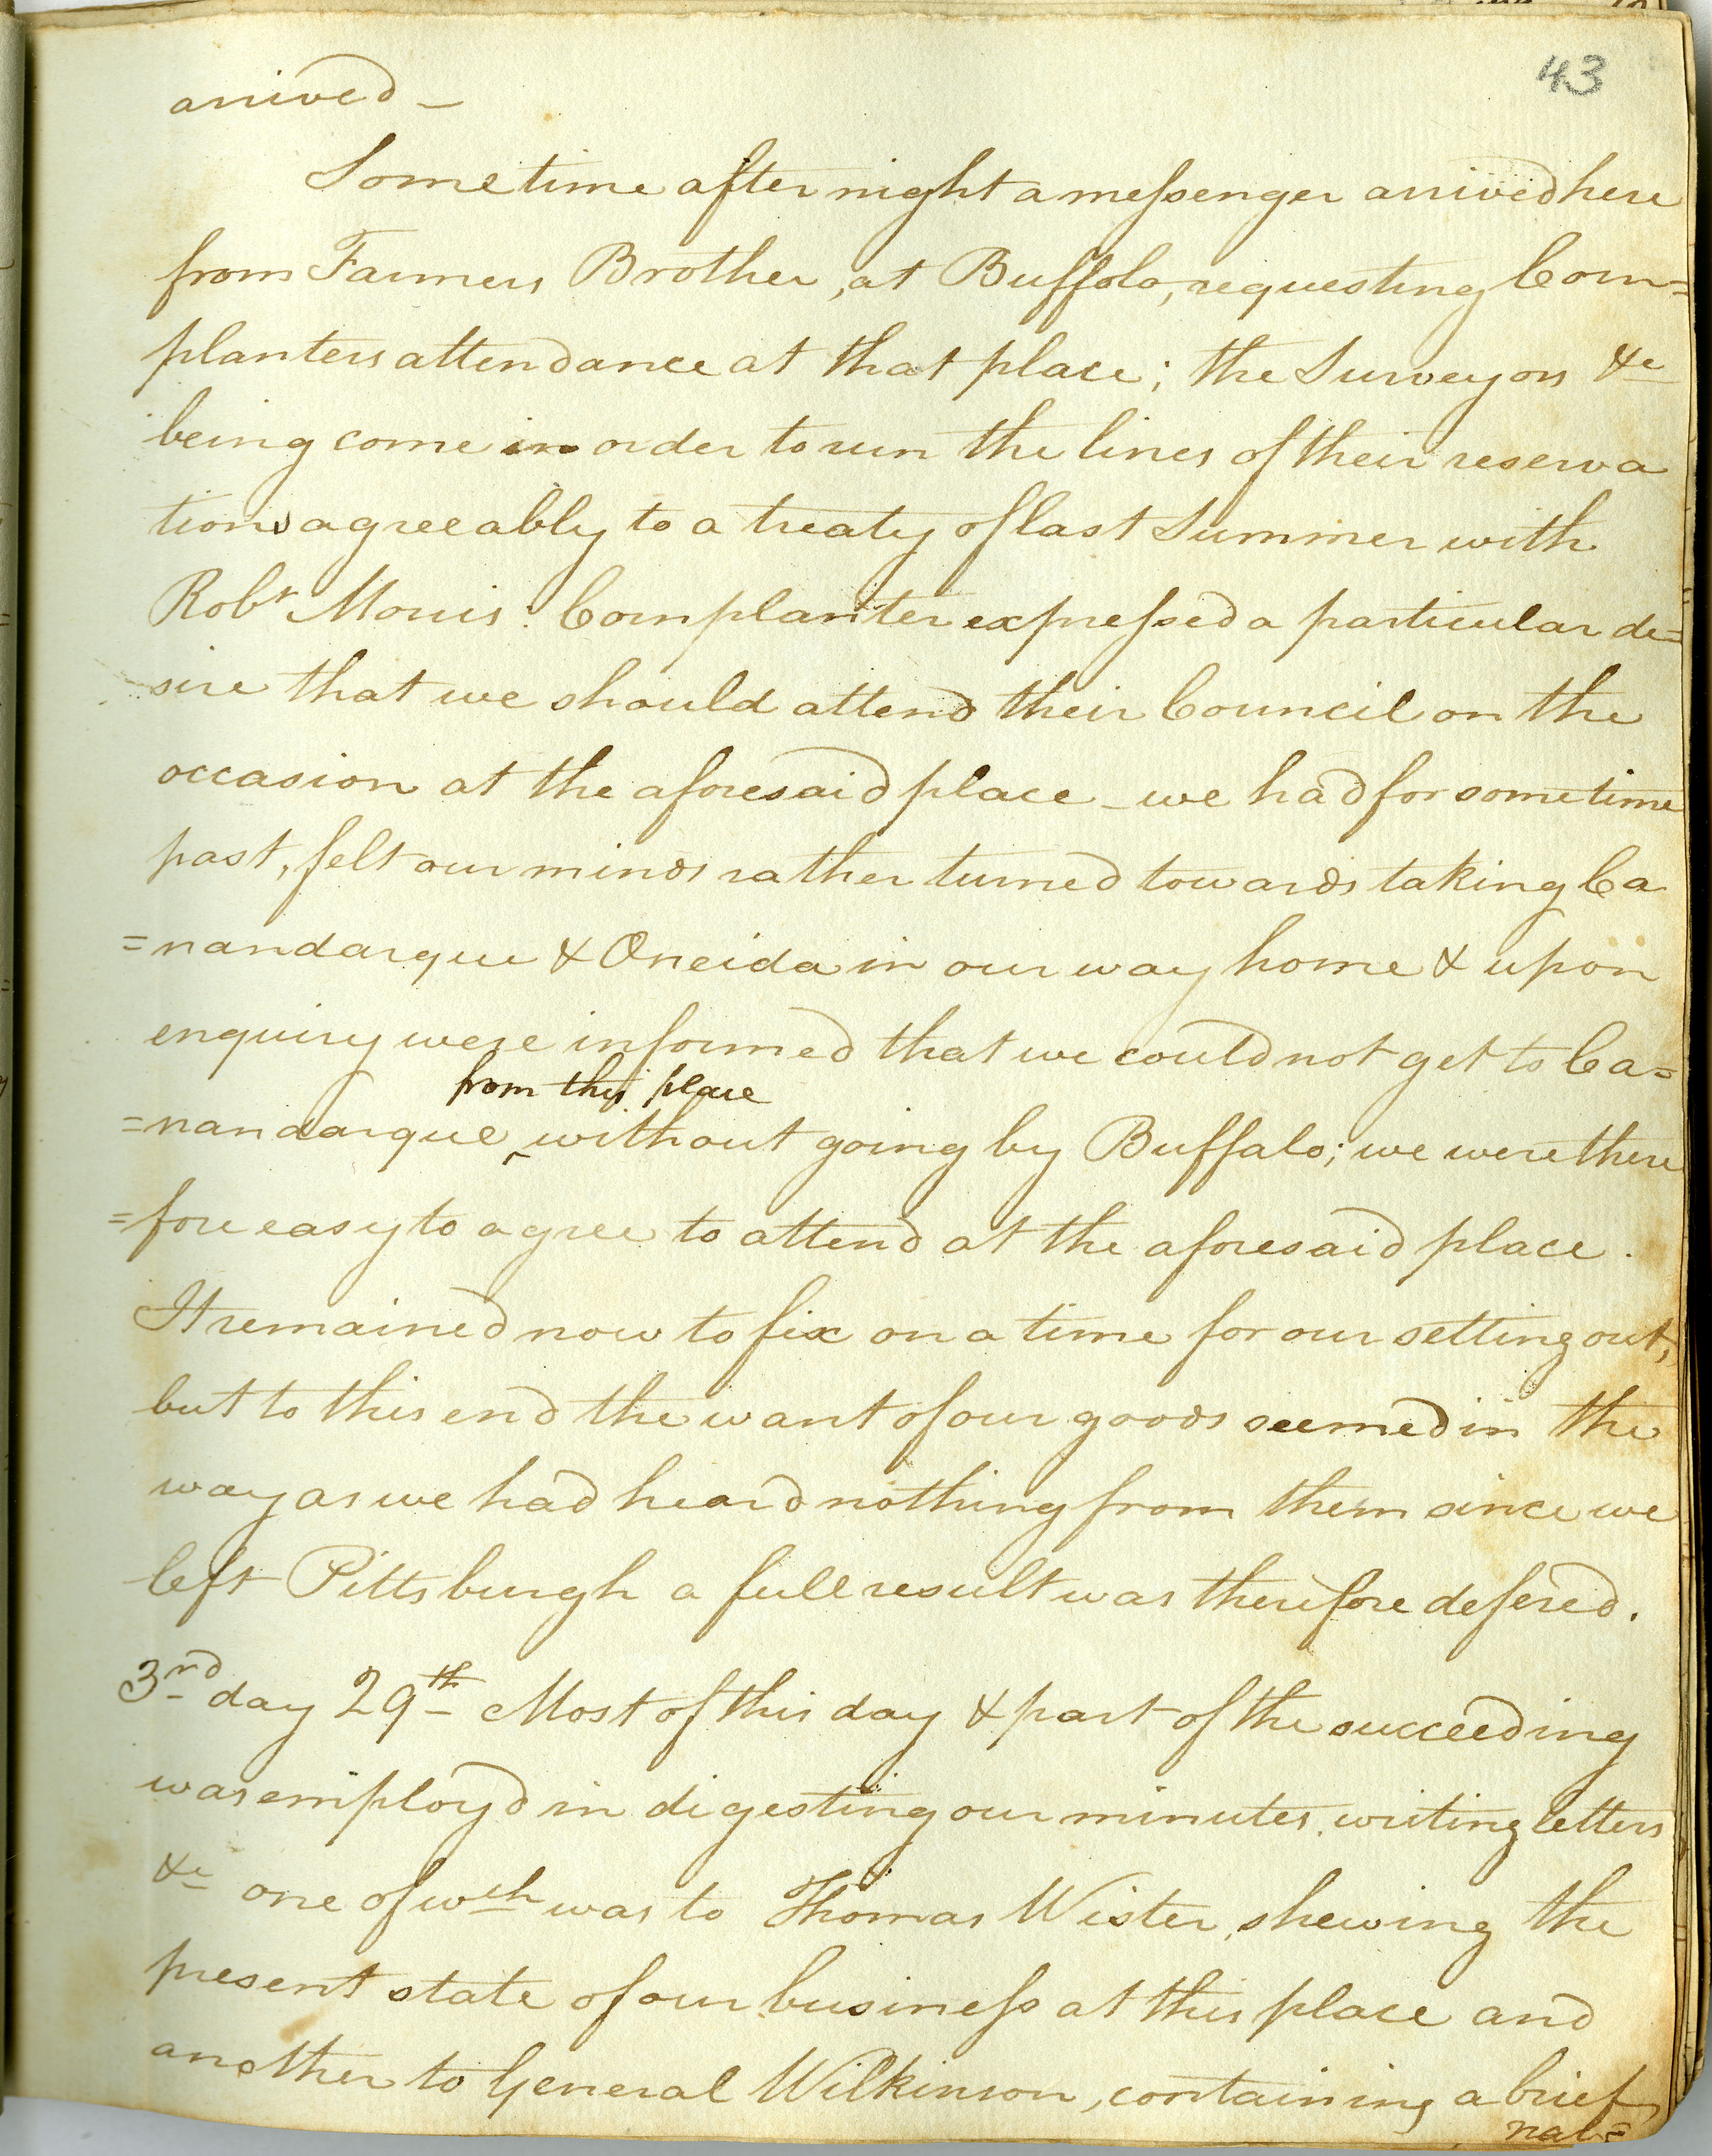 43
arrived —
Sometime after night a meſsenger arrived here
from Farmers Brother, at Buffolo, requesting Corn=
planters attendance at that place; the Surveyors &c
being come in order to run the lines of their reserva
tions agreeably to a treaty of last Summer with
Robt Morris: Cornplanter expreſsed a particular de=
sire that we should attend their Council on the
occasion at the aforesaid place – we had for sometime
past, felt our minds rather turned towards taking Ca
=nandarque & Oneida in our way home & upon
enquiry were informed that we could not get to Ca=
from this place
=nandarque ‸ without going by Buffalo; we were there
=fore easy to agree to attend at the aforesaid place.
It remained now to fix on a time for our setting out,
but to this end the want of our goods seemed in the
way as we had heard nothing from them since we
left Pittsburgh a full result was therefore defered.
3rd day 29th Most of this day & part of the succeeding
was employ'd in digesting our minutes, writing letters
&c one of wch was to Thomas Wister, shewing the
present state of our buſineſs at this place and
another to General Wilkinson, containing a brief